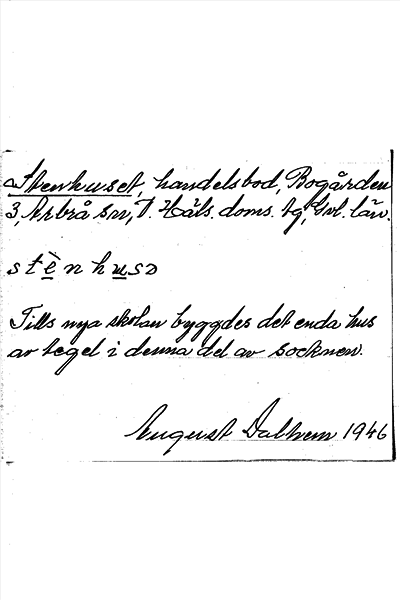 Stenhuset, handelsbod, Bogården
3, Arbrå sn, V. Häls. doms. tg, Gvl. län.
stènhusɔ
Tills nya skolan byggdes det enda hus
av tegel i denna del av socknen.
August Dalhem 1946